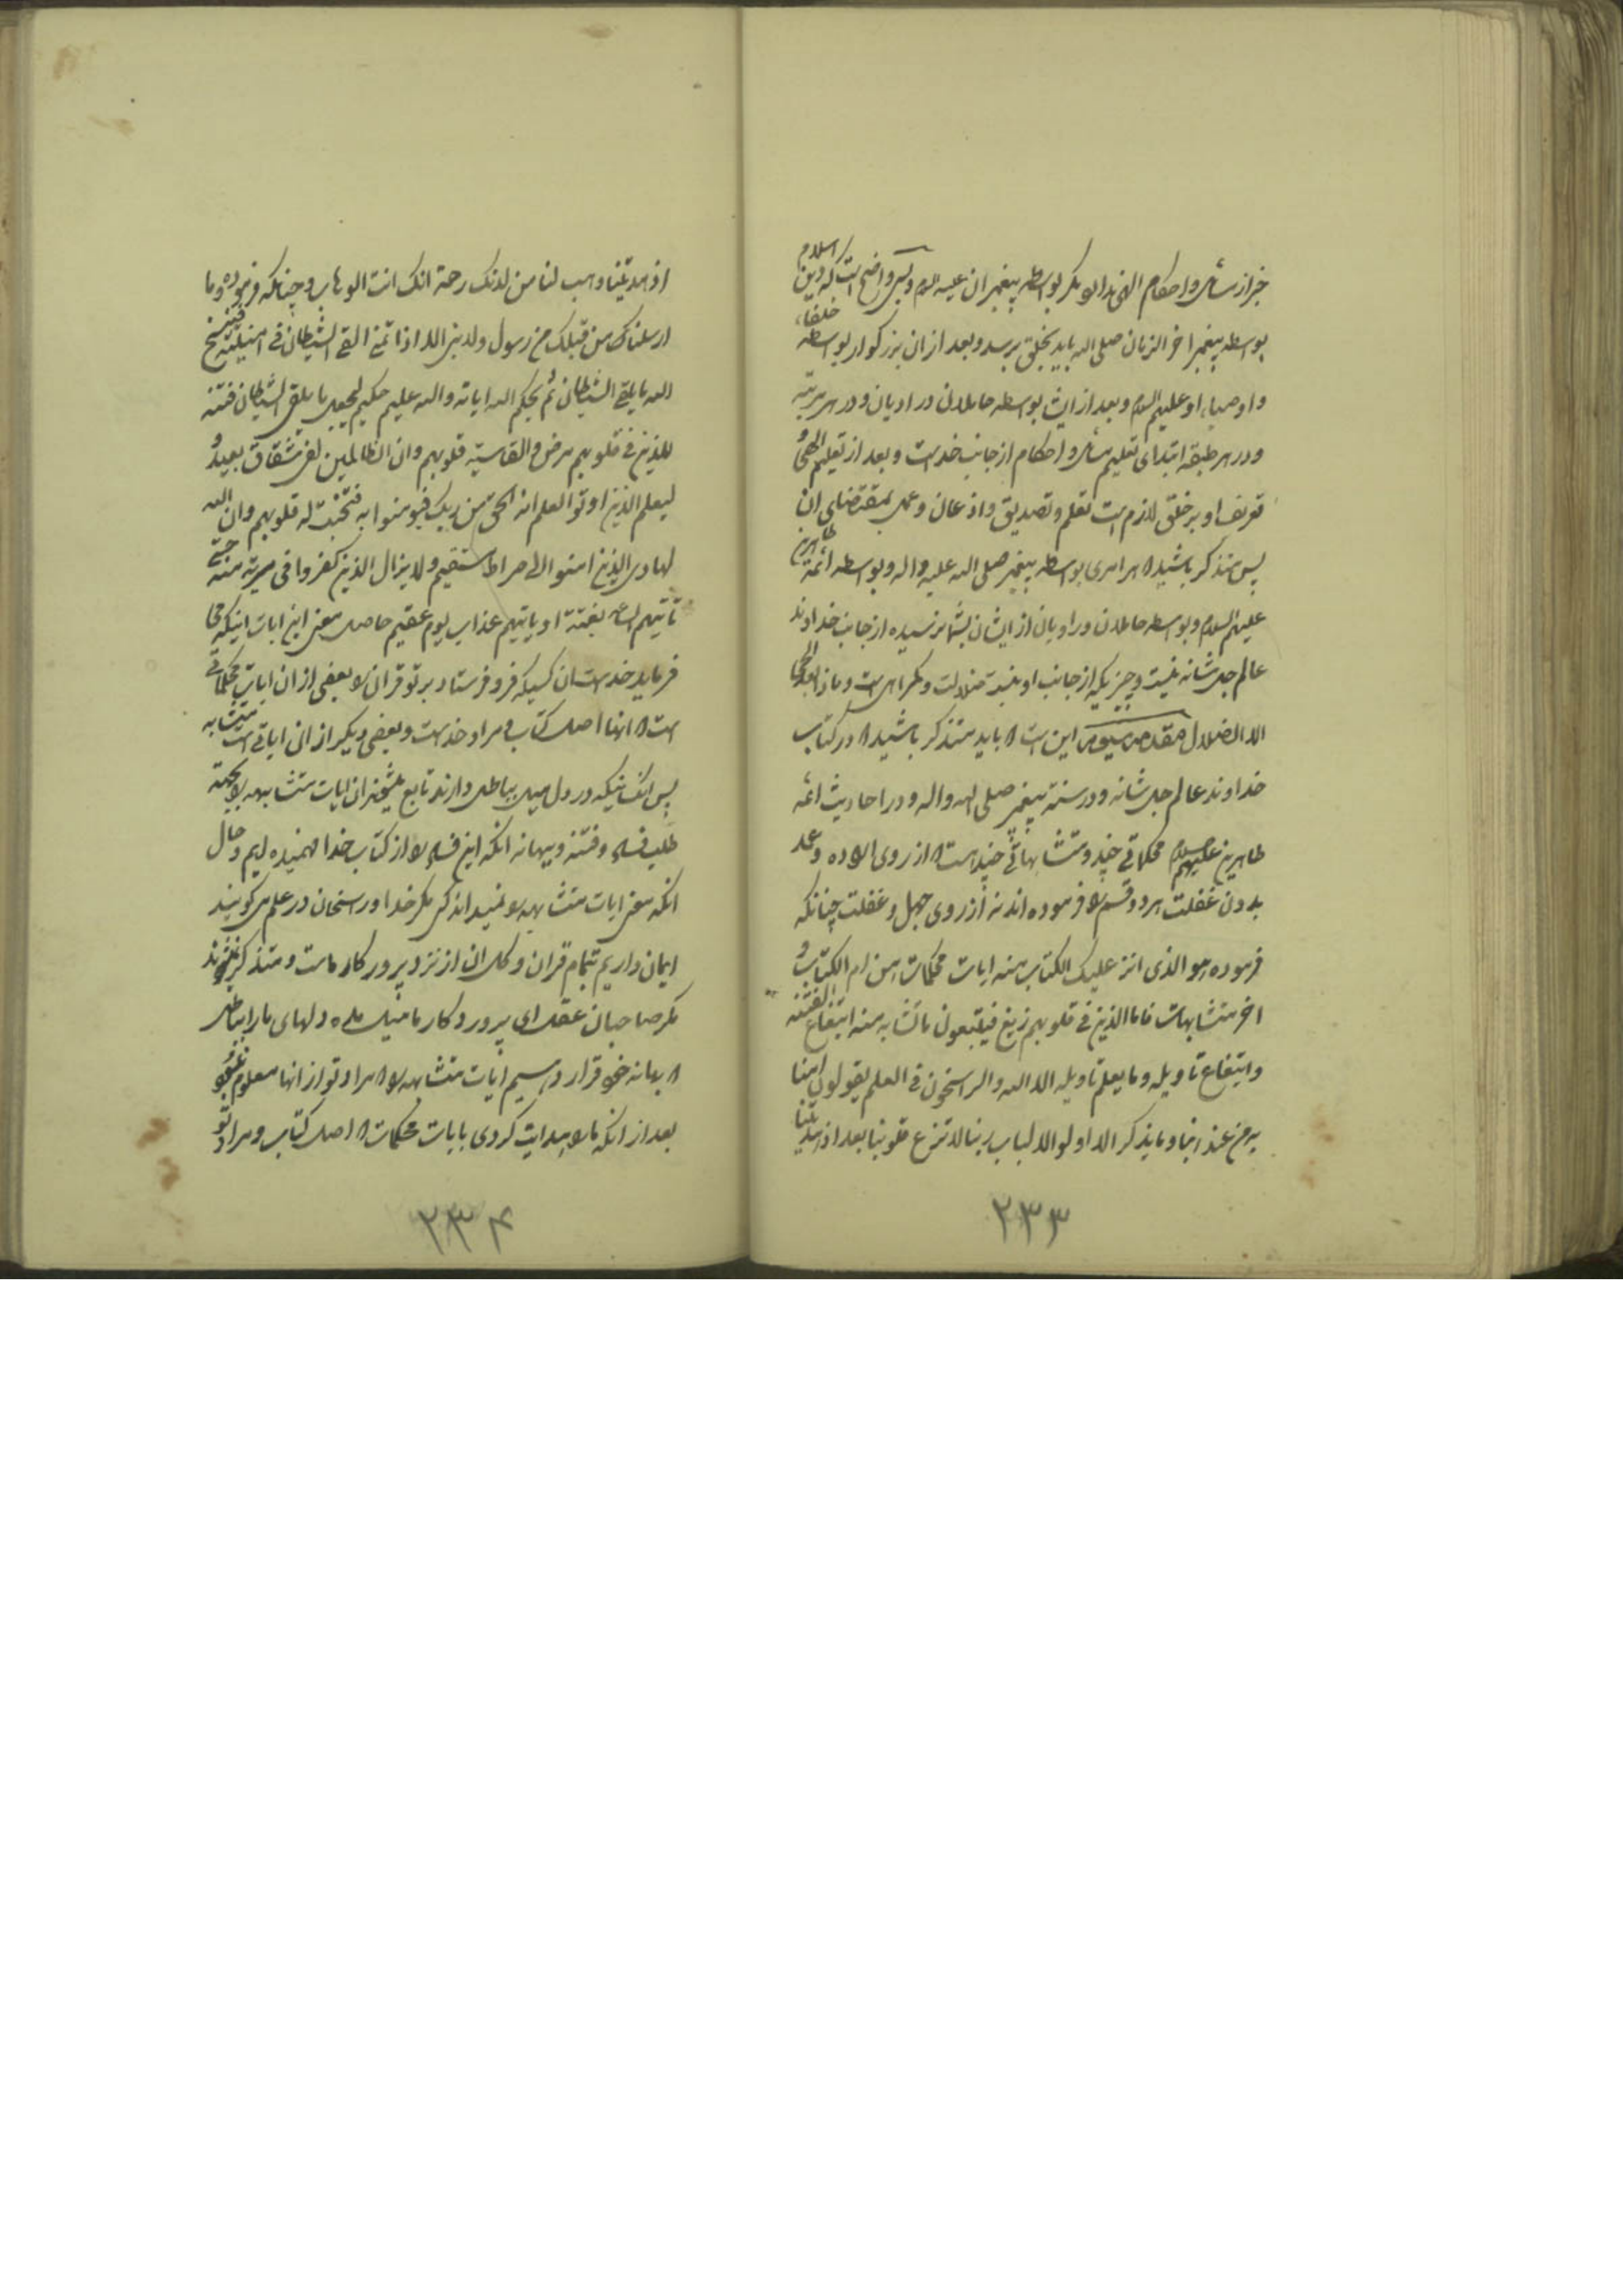 خبر از مسائل و احکام الهی ندارد مگر بواسطه پیغمبران علیهم السلام و پس واضح است که دین اسلام
بواسطه پیغمبر اخر الزمان صلی الله باید بخلق برسد و بعد از ان بزرگوار بواسطه خلفاء
و اوصیاء او علیهم السلام و بعد از ایشان بواسطه حاملان و راویان و در هر مرتبه
و در هر طبقه ابتدای تعلیم مسائل و احکام از جانب خداست و بعد از تعلیم الهی و
تعریف او بر خلق لازم است تعلم و تصدیق و اذعان و عمل بمقتضای ان
پس متذکر باشید که هر امری بواسطه پیغمبر صلی الله علیه و اله و بواسطه ائمه طاهرین
علیهم السلام و بواسطه حاملان و راویان از ایشان بشما نرسیده از جانب خداوند
عالم جل شانه نیست و چیزیکه از جانب او نیست ضلالت و گمراهی است و ماذا بعد الحق
الا الضلال مقدمه سیوم این است که باید متذکر باشید که در کتاب
خداوند عالم جل شانه و در سنة پیغمبر صلی الله و اله و در احادیث ائمه
طاهرین علیهم السلام محکماتی چند و متشابهاتی چند هست که از روی اراده و عمد
بدون غفلت هر دو قسم را فرموده اند نه از روی جهل و غفلت چنانکه
فرموده هو الذی انزل علیک الکتاب منه ایات محکمات هن ام الکتاب و
اخر متشابهات فاما الذین فی قلوبهم زیغ فیتبعون ما تشابه منه ابتغاء الفتنه
و ابتغاء تاویله و ما یعلم تاویله الا الله و الراسخون فی العلم یقولون امنا
به من عند ربنا و ما یذکر الا اولوا الالباب ربنا لا تزغ قلوبنا بعد اذ هدیتنا
۲۳۳
اذ هدیتنا و هب لنا من لدنک رحمة انک انت الوهاب و چنانکه فرموده و ما
ارسلناک من قبلک من رسول و لا نبی الا اذا تمنی القی الشیطان فی امنیته فینسخ
الله ما یلقی الشیطان ثم یحکم الله ایاته و الله علیم حکیم لیجعل ما یلقی الشیطان فتنه
للذین فی قلوبهم مرض و القاسیة قلوبهم و ان الظالمین لفی شقاق بعید و
لیعلم الذین اوتوا العلم انه الحق من ربک فیؤمنوا به فتخبت له قلوبهم و ان الله
لهادی الذین امنوا الی صراط مستقیم و لا یزال الذین کفروا فی مریة منه حتی
تاتیهم الساعه بغتة او یاتیهم عذاب یوم عقیم حاصل معنی این ایات اینکه می
فرماید خداست ان کسیکه فرو فرستاد بر تو قران را بعضی از ان ایات محکماتی
است که انها اصل کتاب و مراد خداست و بعضی دیگر از ان ایاتی است متشابه
پس انکسانیکه در دل میل بباطل دارند تابع میشوند ان ایات متشابهه را بجهة
طلب فساد و فتنه و ببهانه انکه این فساد را از کتاب خدا فهمیده ایم و حال
انکه معنی ایات متشابهه را نمیداند کسی مگر خدا و راسخان در علم می گویند
ایمان داریم بتمام قران و کل ان از نزد پرورکار ماست و متذکر نمیشوند
مگر صاحبان عقل ای پروردکار ما میل مده دلهای ما را بباطل
که بهانه خود قرار دهیم ایات متشابهه را که مراد تو از انها معلوم نمیشود
بعد از انکه ما را هدایت کردی بایات محکمات که اصل کتاب و مراد تو
۲۳۴